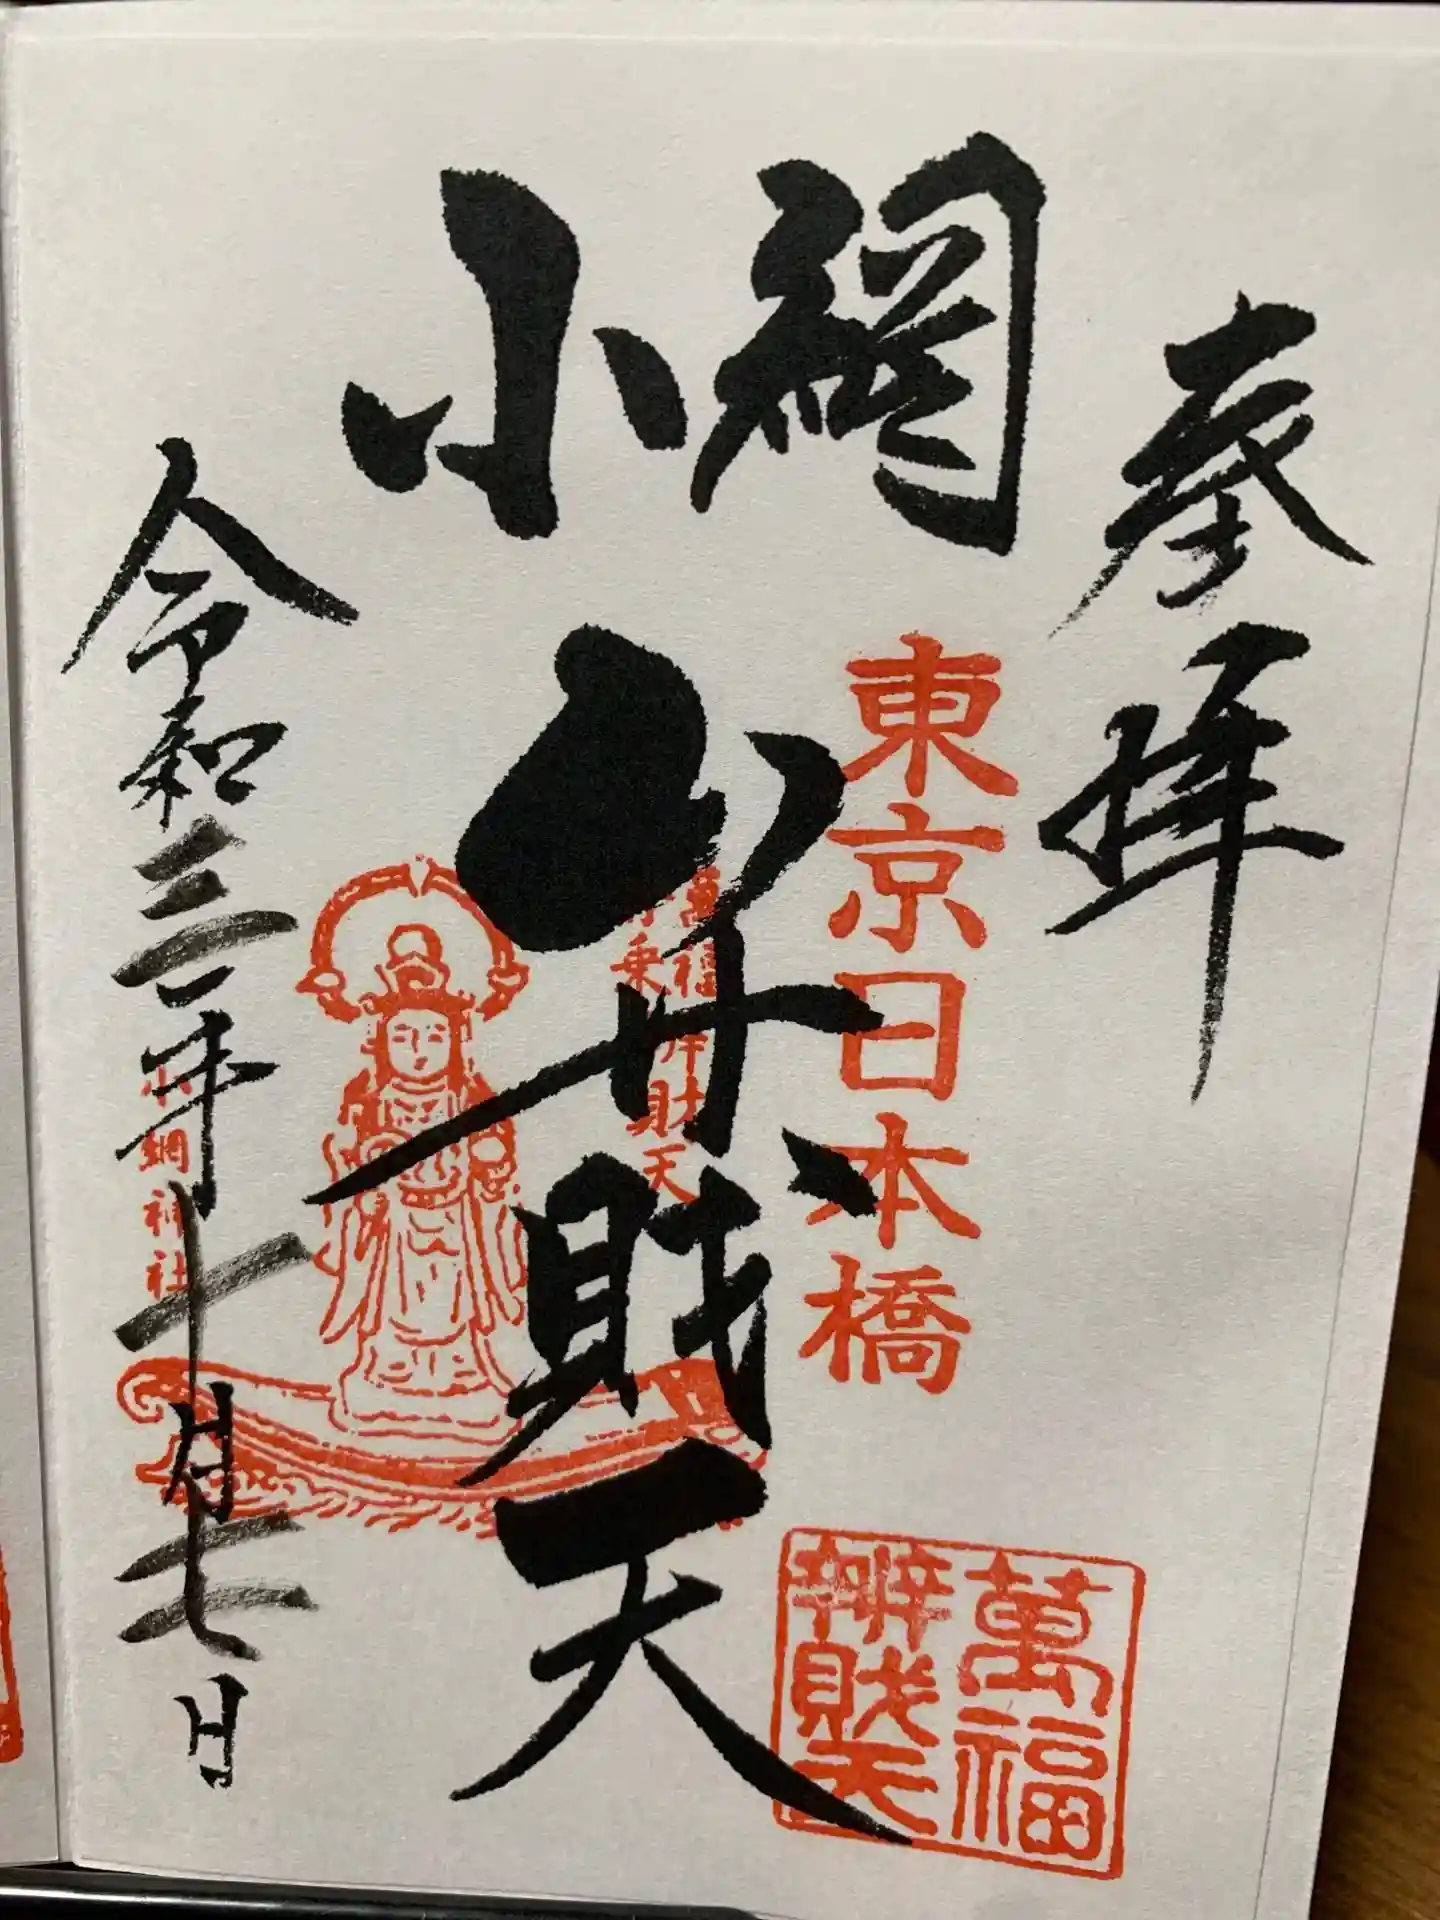 奉拝
東京日本橋
小網
弁財天
萬福
舟乗弁財天
小網神社
令和三年十月七日
萬福
辨財天